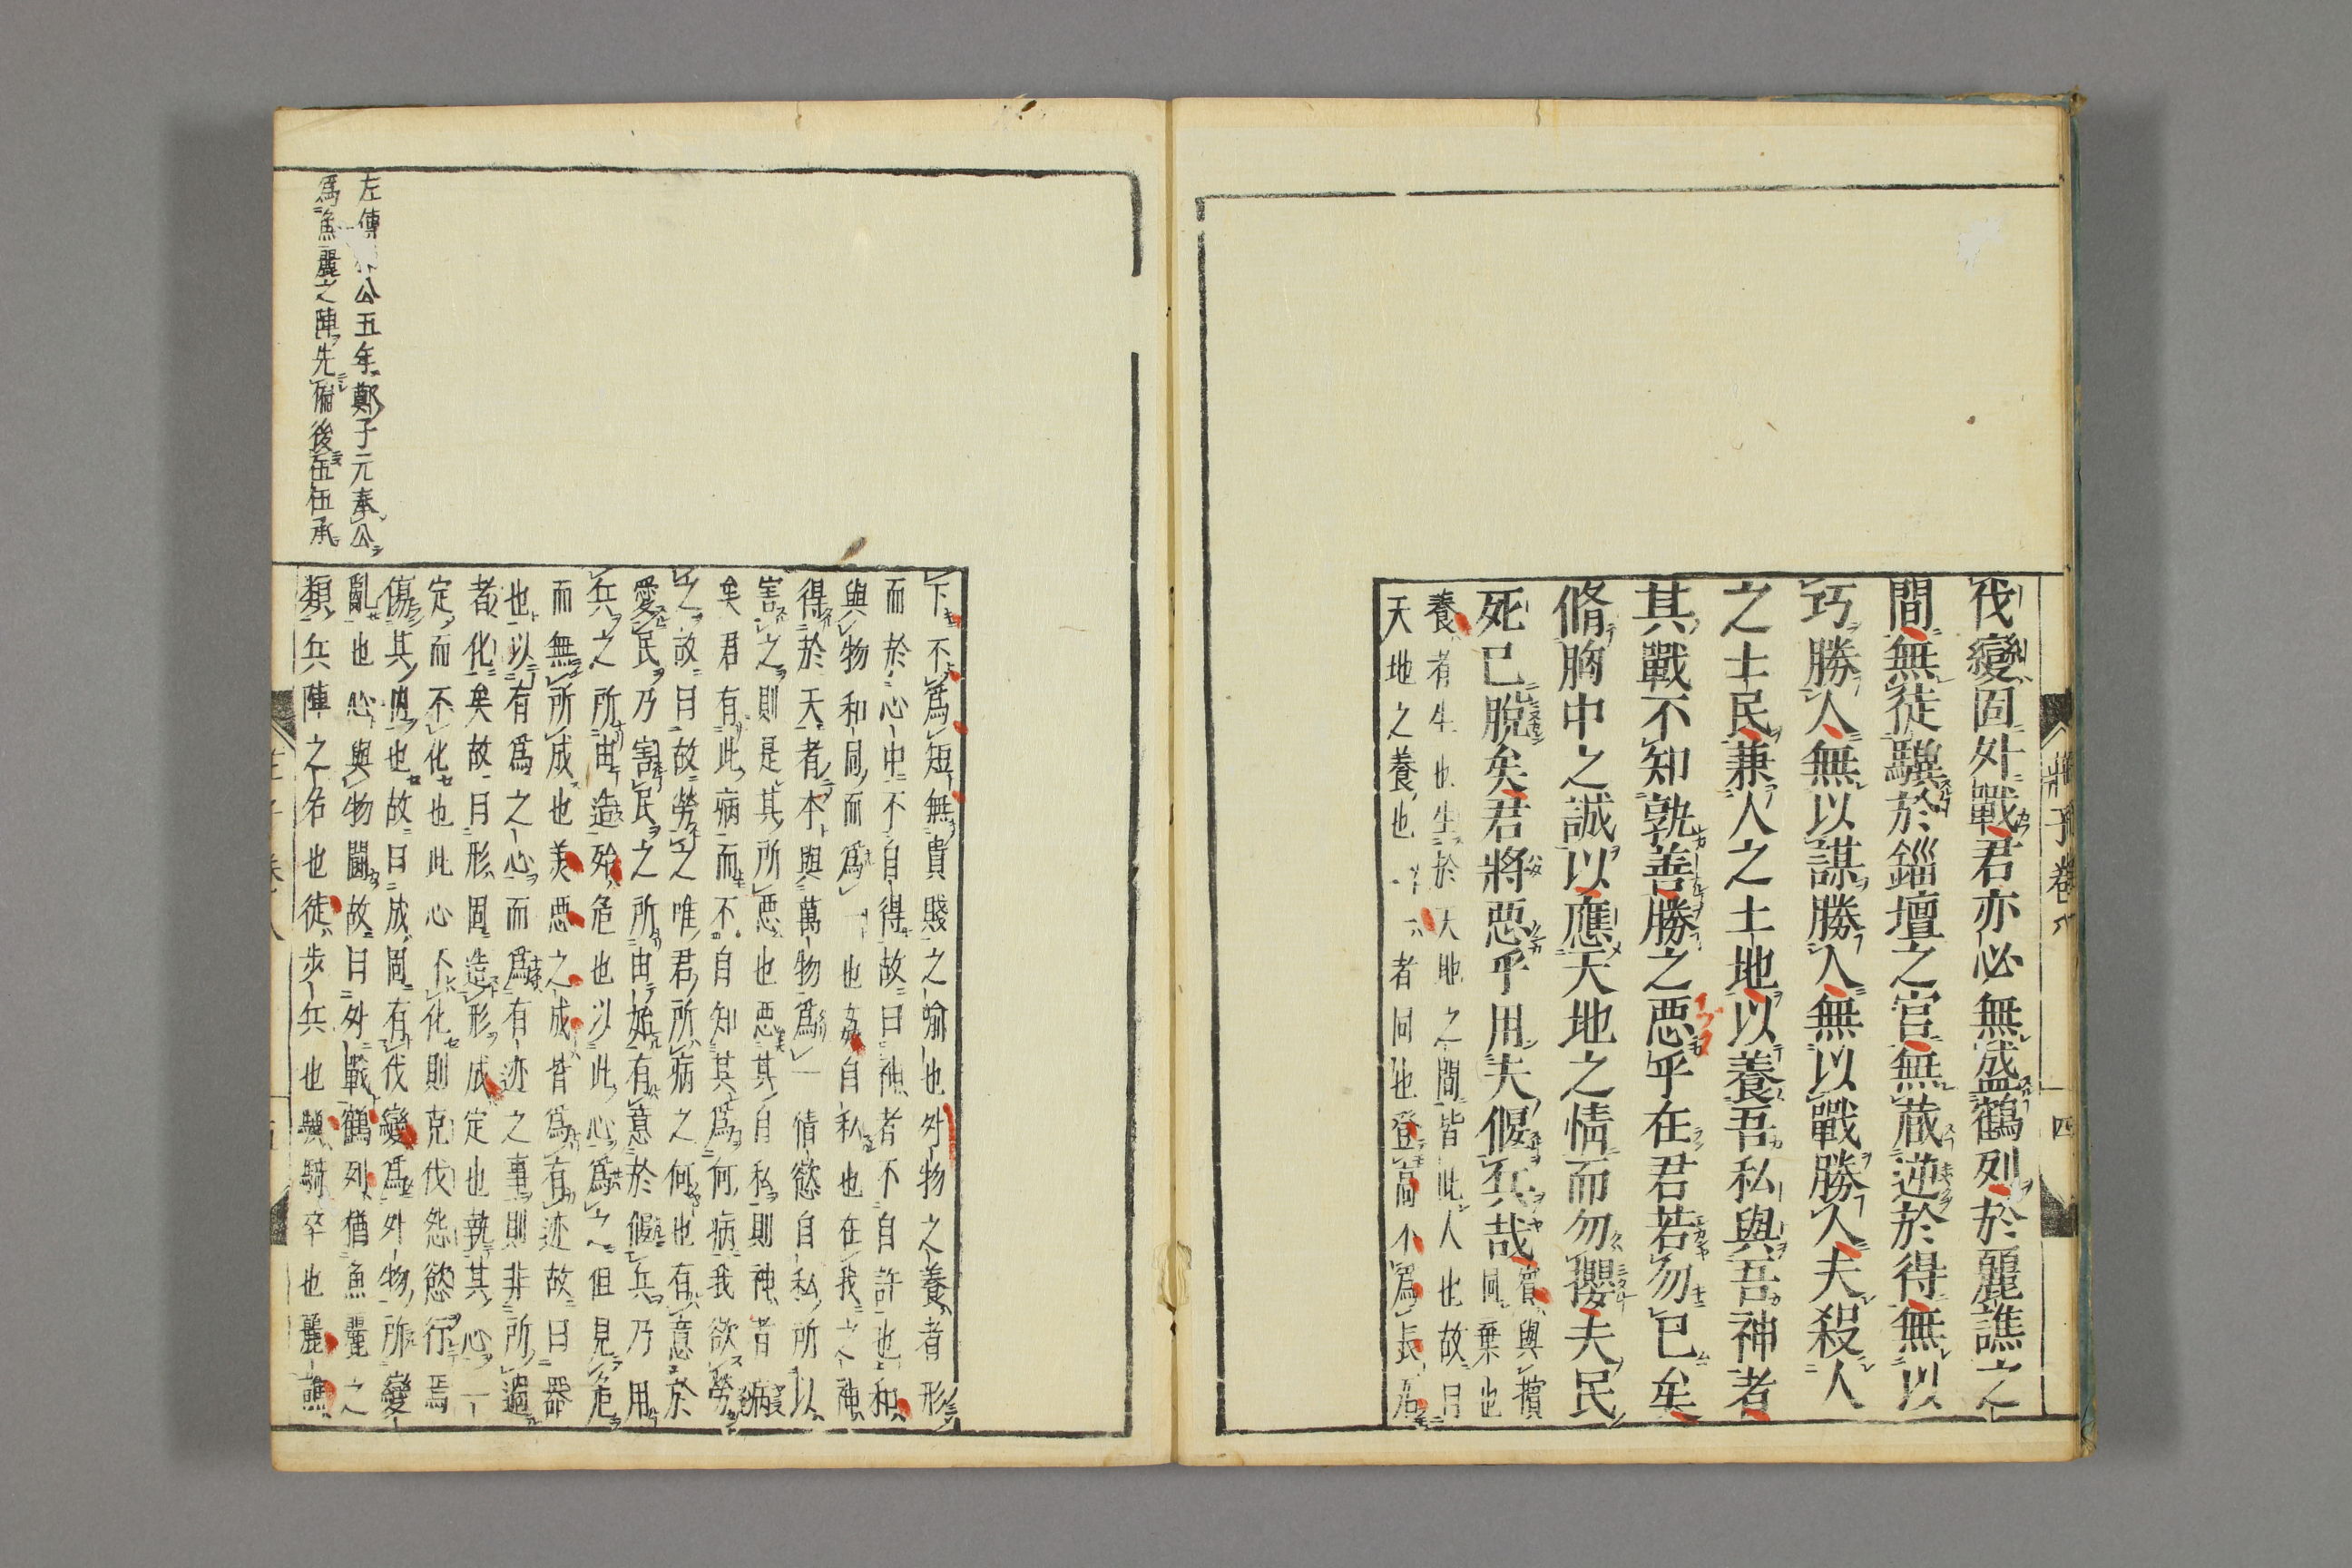 伐變固外戰君亦必無盛鶴列於麗譙之
間無徒驥於錙壇之官無蔵逆於得無以
巧勝人無以謀勝人無以戰勝人夫殺人
之士民兼人之土地以養吾私與吾神者
其戰不知孰善勝之惡乎在君若勿已矣
脩胸中之誠以應天地之情而勿攖夫民
死已脫矣君將惡乎用夫偃兵哉賓與擯
同棄也
養者生也生於天地之間皆此人也故曰
天地之養也一者同也登高不爲長居
莊子卷八
四
下不爲短無貴賤之喻也外物之養者形
而於心中不自得故曰神者不自許也和
與物和同而爲一也姦自私也在我之神
得於天者本與萬物爲一情慾自私所以
害之則是其所惡也惡其自私則神者病
矣君有此病而不自知其爲何病我欲勞
之故曰故勞之唯君所病之何也有意於
愛民乃害民之所由始有意於偃兵乃用
兵之所由造殆危也以此心爲之但見危
而無所成也美惡之成皆爲有迹故曰器
也以有爲之心而爲有迹之事則非所過
者化矣故曰形固造形成定也執其心一
定而不化也此心不化則克伐怨慾行焉
傷其內也故曰成固有伐變爲外物所變
亂也心與物鬪故曰外戰鶴列猶魚麗之
類兵陣之名也徒步兵也驥騎卒也麗譙
左傳公五年鄭子元奉公
爲魚麗之陣先偏後伍伍承